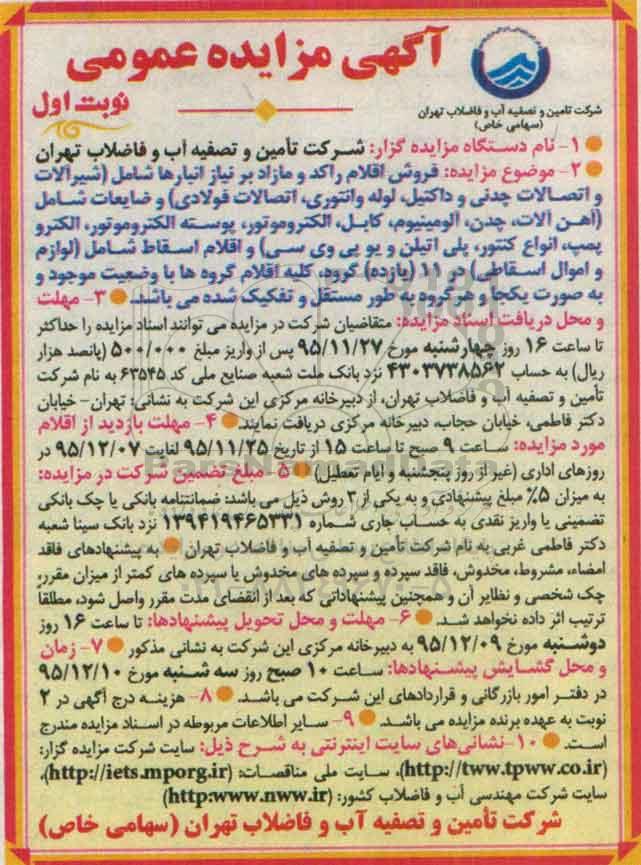 آگهی مزایده عمومی
نوبت اول
شرکت تامین و تصفیه آب و فاضلاب تهران
(سهامی خاص)
۱- نام دستگاه مزایده گزار: شرکت تأمین و تصفیه آب و فاضلاب تهران
۲- موضوع مزایده: فروش اقلام راکد و مازاد بر نیاز انبارها شامل (شیرآلات
و اتصالات چدنی و داکتیل، لوله وانتوری، اتصالات فولادی) و ضایعات شامل
(آهن آلات، چدن، آلومینیوم، کابل، الکتروموتور، پوسته الکتروموتور، الکترو
پمپ، انواع کنتور، پلی اتیلن و یو پی وی سی) و اقلام اسقاط شامل (لوازم
و اموال اسقاطی) در ۱۱ (یازده) گروه، کلیه اقلام گروه ها با وضعیت موجود و
به صورت یکجا و هر گروه به طور مستقل و تفکیک شده می باشد. ۳- مهلت
و محل دریافت اسناد مزایده: متقاضیان شرکت در مزایده می توانند اسناد مزایده را حداکثر
تا ساعت ۱۶ روز چهارشنبه مورخ ۹۵/۱۱/۲۷ پس از واریز مبلغ ۵۰۰/۰۰۰ (پانصد هزار
ریال) به حساب ۴۳۰۳۷۳۸۵۶۲ نزد بانک ملت شعبه صنایع ملی کد ۶۳۵۴۵ به نام شرکت
تأمین و تصفیه آب و فاضلاب تهران، از دبیرخانه مرکزی این شرکت به نشانی: تهران- خیابان
دکتر فاطمی، خیابان حجاب، دبیرخانه مرکزی دریافت نمایند. ۴- مهلت بازدید از اقلام
مورد مزایده: ساعت ۹ صبح تا ساعت ۱۵ از تاریخ ۹۵/۱۱/۲۵ لغایت ۹۵/۱۲/۰۷ در
روزهای اداری (غیر از روز پنجشنبه و ایام تعطیل) ۵- مبلغ تضمین شرکت در مزایده:
به میزان ۵٪ مبلغ پیشنهادی و به یکی از ۳ روش ذیل می باشد: ضمانتنامه بانکی یا چک بانکی
تضمینی یا واریز نقدی به حساب جاری شماره ۱۳۹۴۱۹۴۶۵۳۳۱ نزد بانک سینا شعبه
دکتر فاطمی غربی به نام شرکت تأمین و تصفیه آب و فاضلاب تهران به پیشنهادهای فاقد
امضاء، مشروط، مخدوش، فاقد سپرده و سپرده های مخدوش یا سپرده های کمتر از میزان مقرر،
چک شخصی و نظایر آن و همچنین پیشنهاداتی که بعد از انقضای مدت مقرر واصل شود، مطلقا
ترتیب اثر داده نخواهد شد. ۶- مهلت و محل تحویل پیشنهادها: تا ساعت ۱۶ روز
دوشنبه مورخ ۹۵/۱۲/۰۹ به دبیرخانه مرکزی این شرکت به نشانی مذکور ۷- زمان
و محل گشایش پیشنهادها: ساعت ۱۰ صبح روز سه شنبه مورخ ۹۵/۱۲/۱۰
در دفتر امور بازرگانی و قراردادهای این شرکت می باشد. ۸- هزینه درج آگهی در ۲
نوبت به عهده برنده مزایده می باشد. ۹- سایر اطلاعات مربوطه در اسناد مزایده مندرج
است. ۱۰- نشانی‌های سایت اینترنتی به شرح ذیل: سایت شرکت مزایده گزار:
(http://tww.tpww.co.ir)، سایت ملی مناقصات: (http://iets.mporg.ir)،
سایت شرکت مهندسی آب و فاضلاب کشور: (http:www.nww.ir)
شرکت تأمین و تصفیه آب و فاضلاب تهران (سهامی خاص)